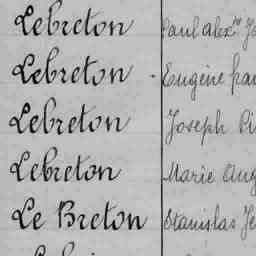 Lebreton Paul alex.re
Lebreton Eugène
Lebreton Joseph
Lebreton Marie
Le Breton Stanislas